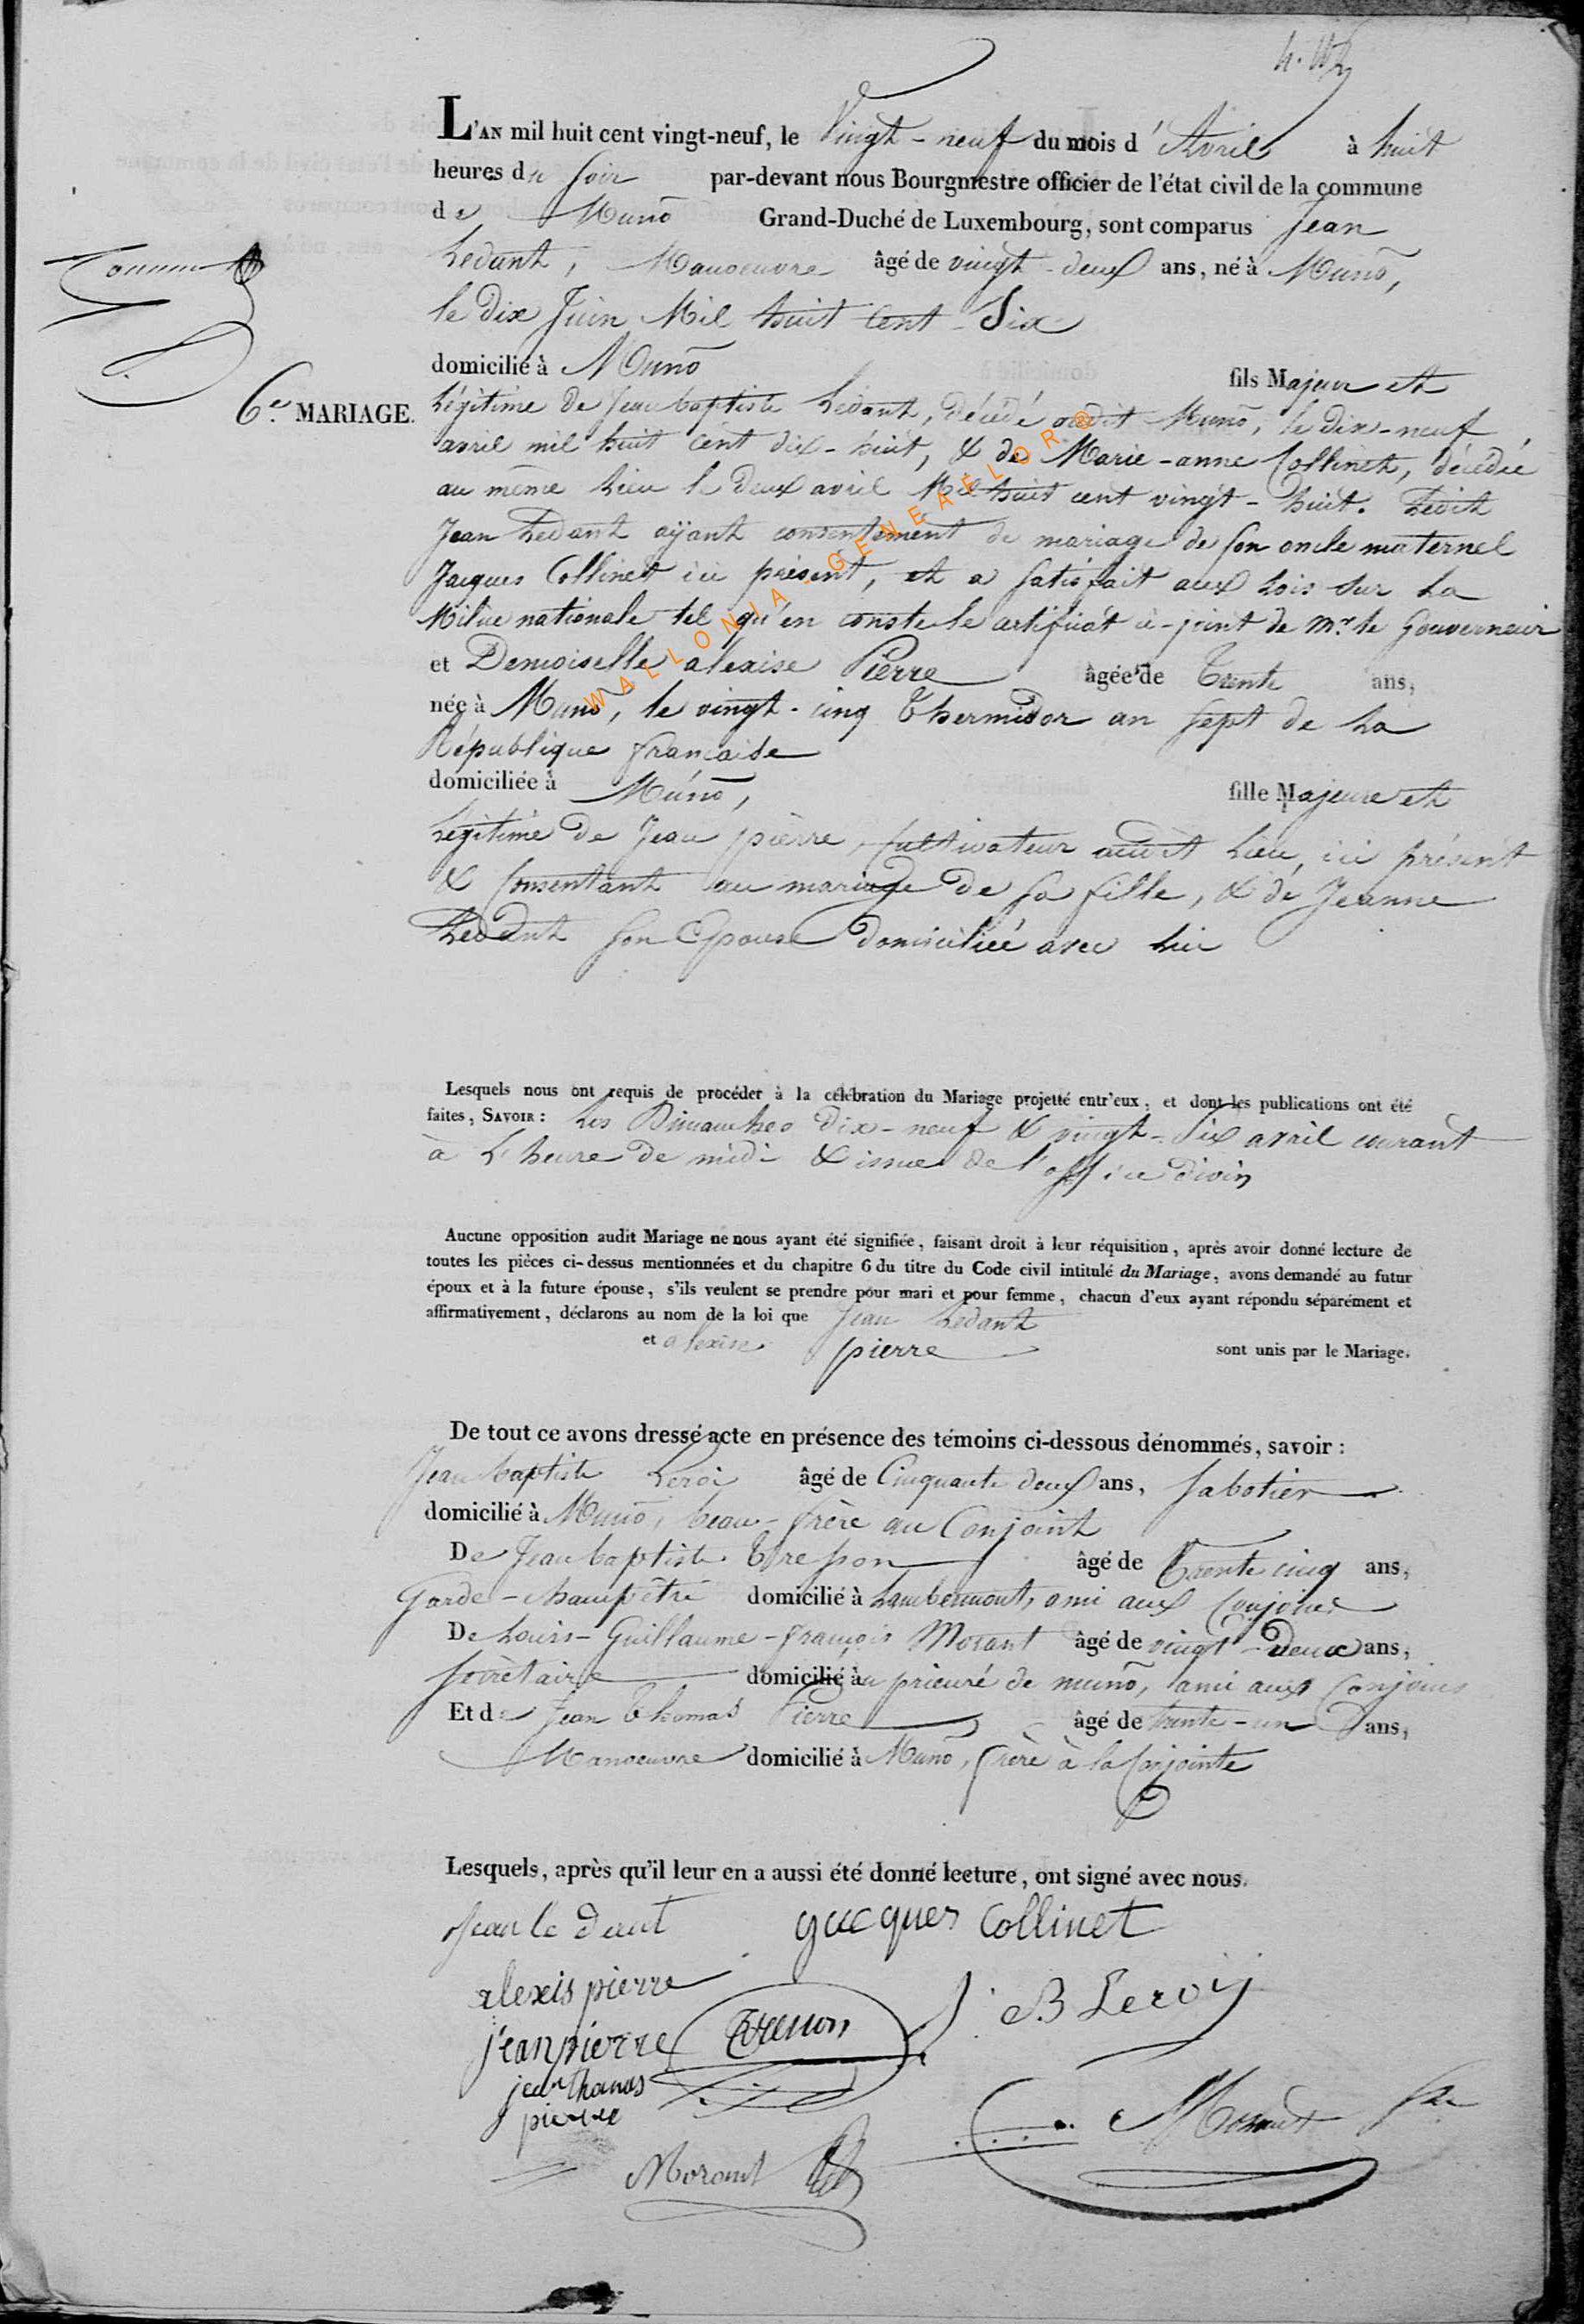 L'AN mil huit cent vingt-neuf, le Vingt-neuf du mois d'Avril à huit
heures du soir par-devant nous Bourgmestre officier de l'état civil de la commune
de Muno Grand-Duché de Luxembourg, sont comparus Jean
Ledant, Manoeuvre âgé de vingt-deux ans, né à Muno,
le dix Juin Mil huit Cent Six
domicilié à Muno fils Majeur et
6e. MARIAGE.
Légitime de Jean baptiste Ledant, décédé audit Muno, le dix-neuf
avril mil huit cent dix-huit, & de Marie-anne Collinet, décédée
au même Lieu le deux avril Mil huit cent vingt-huit. Ledit
Jean Ledant aÿant consentement de mariage de son oncle maternel
Jacques Collinet ici présent, et a satisfait aux Lois sur La
Milice nationale tel qu'en conste le certificat ci-joint de Mr. le Gouverneur
et Demoiselle alexise Pierre âgée de Trente ans,
née à Muno, le vingt-cinq Thermidor an sept de La
République francaise
domiciliée à Muno, fille Majeure et
Légitime de Jean pierre, Cultivateur audit Lieu, ici présent
& Consentant au mariage de sa fille, & de Jeanne
Ledant son Epouse domiciliée avec lui
Lesquels nous ont requis de procéder à la célébration du Mariage projetté entr'eux, et dont les publications ont été
faites, SAVOIR : Les Dimanches dix-neuf & vingt-Six avril courant
à L'heure de midi & issue de l'office divin
Aucune opposition audit Mariage ne nous ayant été signifiée, faisant droit à leur réquisition, après avoir donné lecture de
toutes les pièces ci-dessus mentionnées et du chapitre 6 du titre du Code civil intitulé du Mariage, avons demandé au futur
époux et à la future épouse, s'ils veulent se prendre pour mari et pour femme, chacun d'eux ayant répondu séparément et
affirmativement, déclarons au nom de la loi que Jean Ledant
et alexise pierre sont unis par le Mariage.
De tout ce avons dressé acte en présence des témoins ci-dessous dénommés, savoir :
Jean baptiste Leroi âgé de Cinquante deux ans, Sabotier
domicilié à Muno, beau-frère au Conjoint
De Jean baptiste Tresson âgé de Trente cinq ans,
Garde-champêtre domicilié à Lambermont, ami aux Conjoins
De Louis-Guillaume-françois Morant âgé de vingt-Deux ans,
Secrètaire domicilié au prieuré de muno, ami aux Conjoins
Et de Jean Thomas Pierre âgé de trente-un ans,
Manoeuvre domicilié à Muno, frère à la Conjointe
Lesquels, après qu'il leur en a aussi été donné lecture, ont signé avec nous.
Jean le Dant jacques Collinet
alexis pierre
J B Leroÿ
jean pierre Tresson
jean thomas
pierre
Morant
Morant
WALLONIA-GENEAELOR®